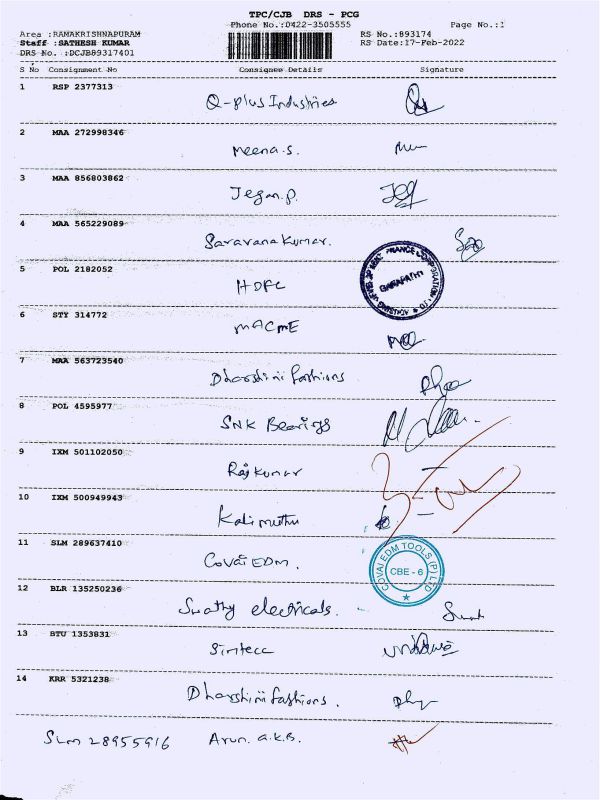 TPC/CJB DRS - PCG
Phone No.:0422-3505555 Page No.:1
Area :RAMAKRISHNAPURAM RS No.:893174
Staff :SATHESH KUMAR RS Date:17-Feb-2022
DRS No. :DCJB89317401
S No Consignment No Consignee Details Signature
1 RSP 2377313
Q-plus Industries
2 MAA 272998346
Meena.S.
3 MAA 856803862
Jegan.P.
4 MAA 565229089
Saravana Kumar.
5 POL 2182052
HDFC
GANAPATHY
6 STY 314772
MACME
7 MAA 563723540
Dharshini fashions
8 POL 4595977
SNK Bearings
9 IXM 501102050
Raj Kumar
10 IXM 500949943
Kalimuthu
11 SLM 289637410
Covai EDM.
COVAI EDM TOOLS (P) LTD
CBE - 6
12 BLR 135250236
Swathy electricals.
13 BTU 1353831
Simtecc
14 KRR 5321238
Dharshini fashions.
SLM 28955916 Arun. a.k.B.